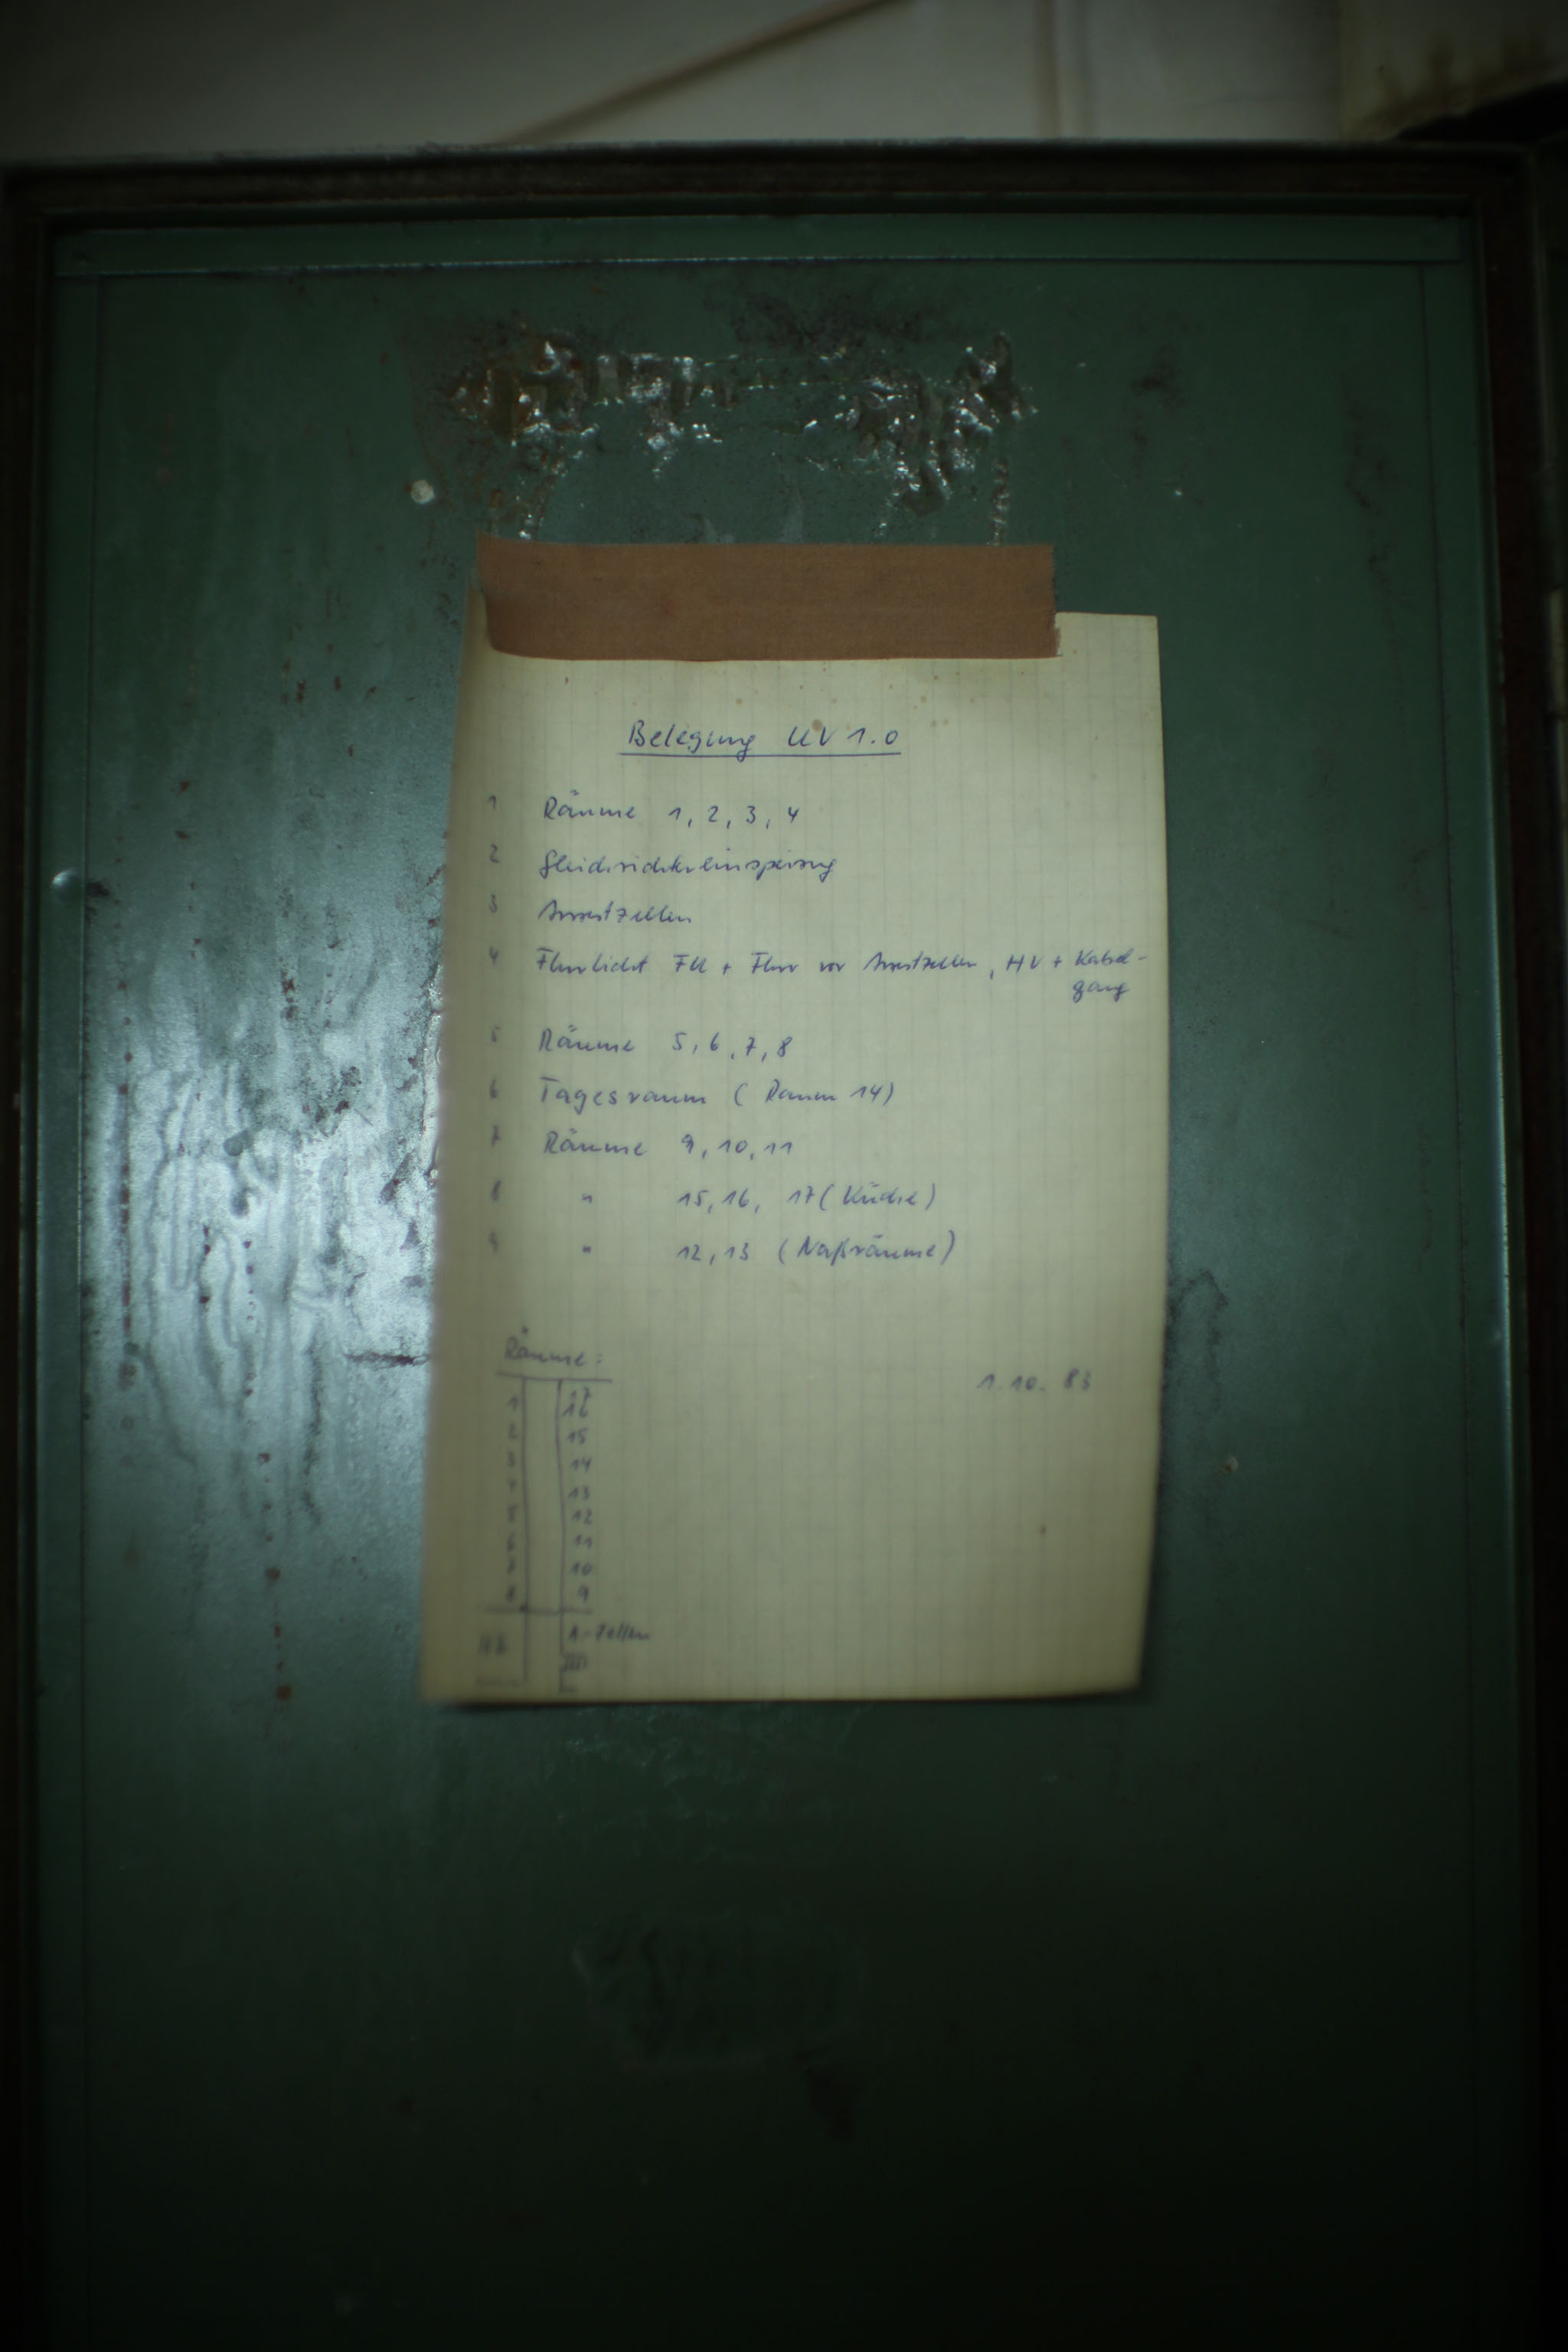 Belegung UV 1.0
1 Räume 1, 2, 3, 4
2 Gleichrichtereinspeisung
3 Arrestzellen
4 Flurlicht FU + Flur vor Arrestzellen, HV + Kabel-
gang
5 Räume 5, 6, 7, 8
6 Tagesraum (Raum 14)
7 Räume 9, 10, 11
8 " 15, 16, 17 (Küche)
9 " 12, 13 (Naßräume)
Räume:
1.10.83
17
1 16
2 15
3 14
4 13
5 12
6 11
7 10
8 9
A-Zellen